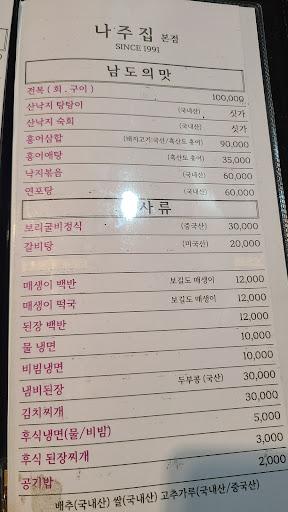 나주집 본점
SINCE 1991
남도의맛
전복 (회.구이) 100,000
산낙지 탕탕이 (국내산) 싯가
산낙지 숙회 (국내산) 싯가
홍어삼합 (돼지고기:국산/흑산도 홍어) 90,000
홍어애탕 (흑산도 홍어) 35,000
낙지볶음 (국내산) 60,000
연포탕 (국내산) 60,000
사류
보리굴비정식 (중국산) 30,000
갈비탕 (미국산) 20,000
매생이 백반 보길도 매생이 12,000
매생이 떡국 보길도 매생이 12,000
된장 백반 12,000
물 냉면 10,000
비빔냉면 10,000
냄비된장 두부콩 (국산) 30,000
김치찌개 30,000
후식냉면(물/비빔) 5,000
후식 된장찌개 3,000
공기밥 2,000
배추(국내산) 쌀(국내산) 고추가루(국내산/중국산)